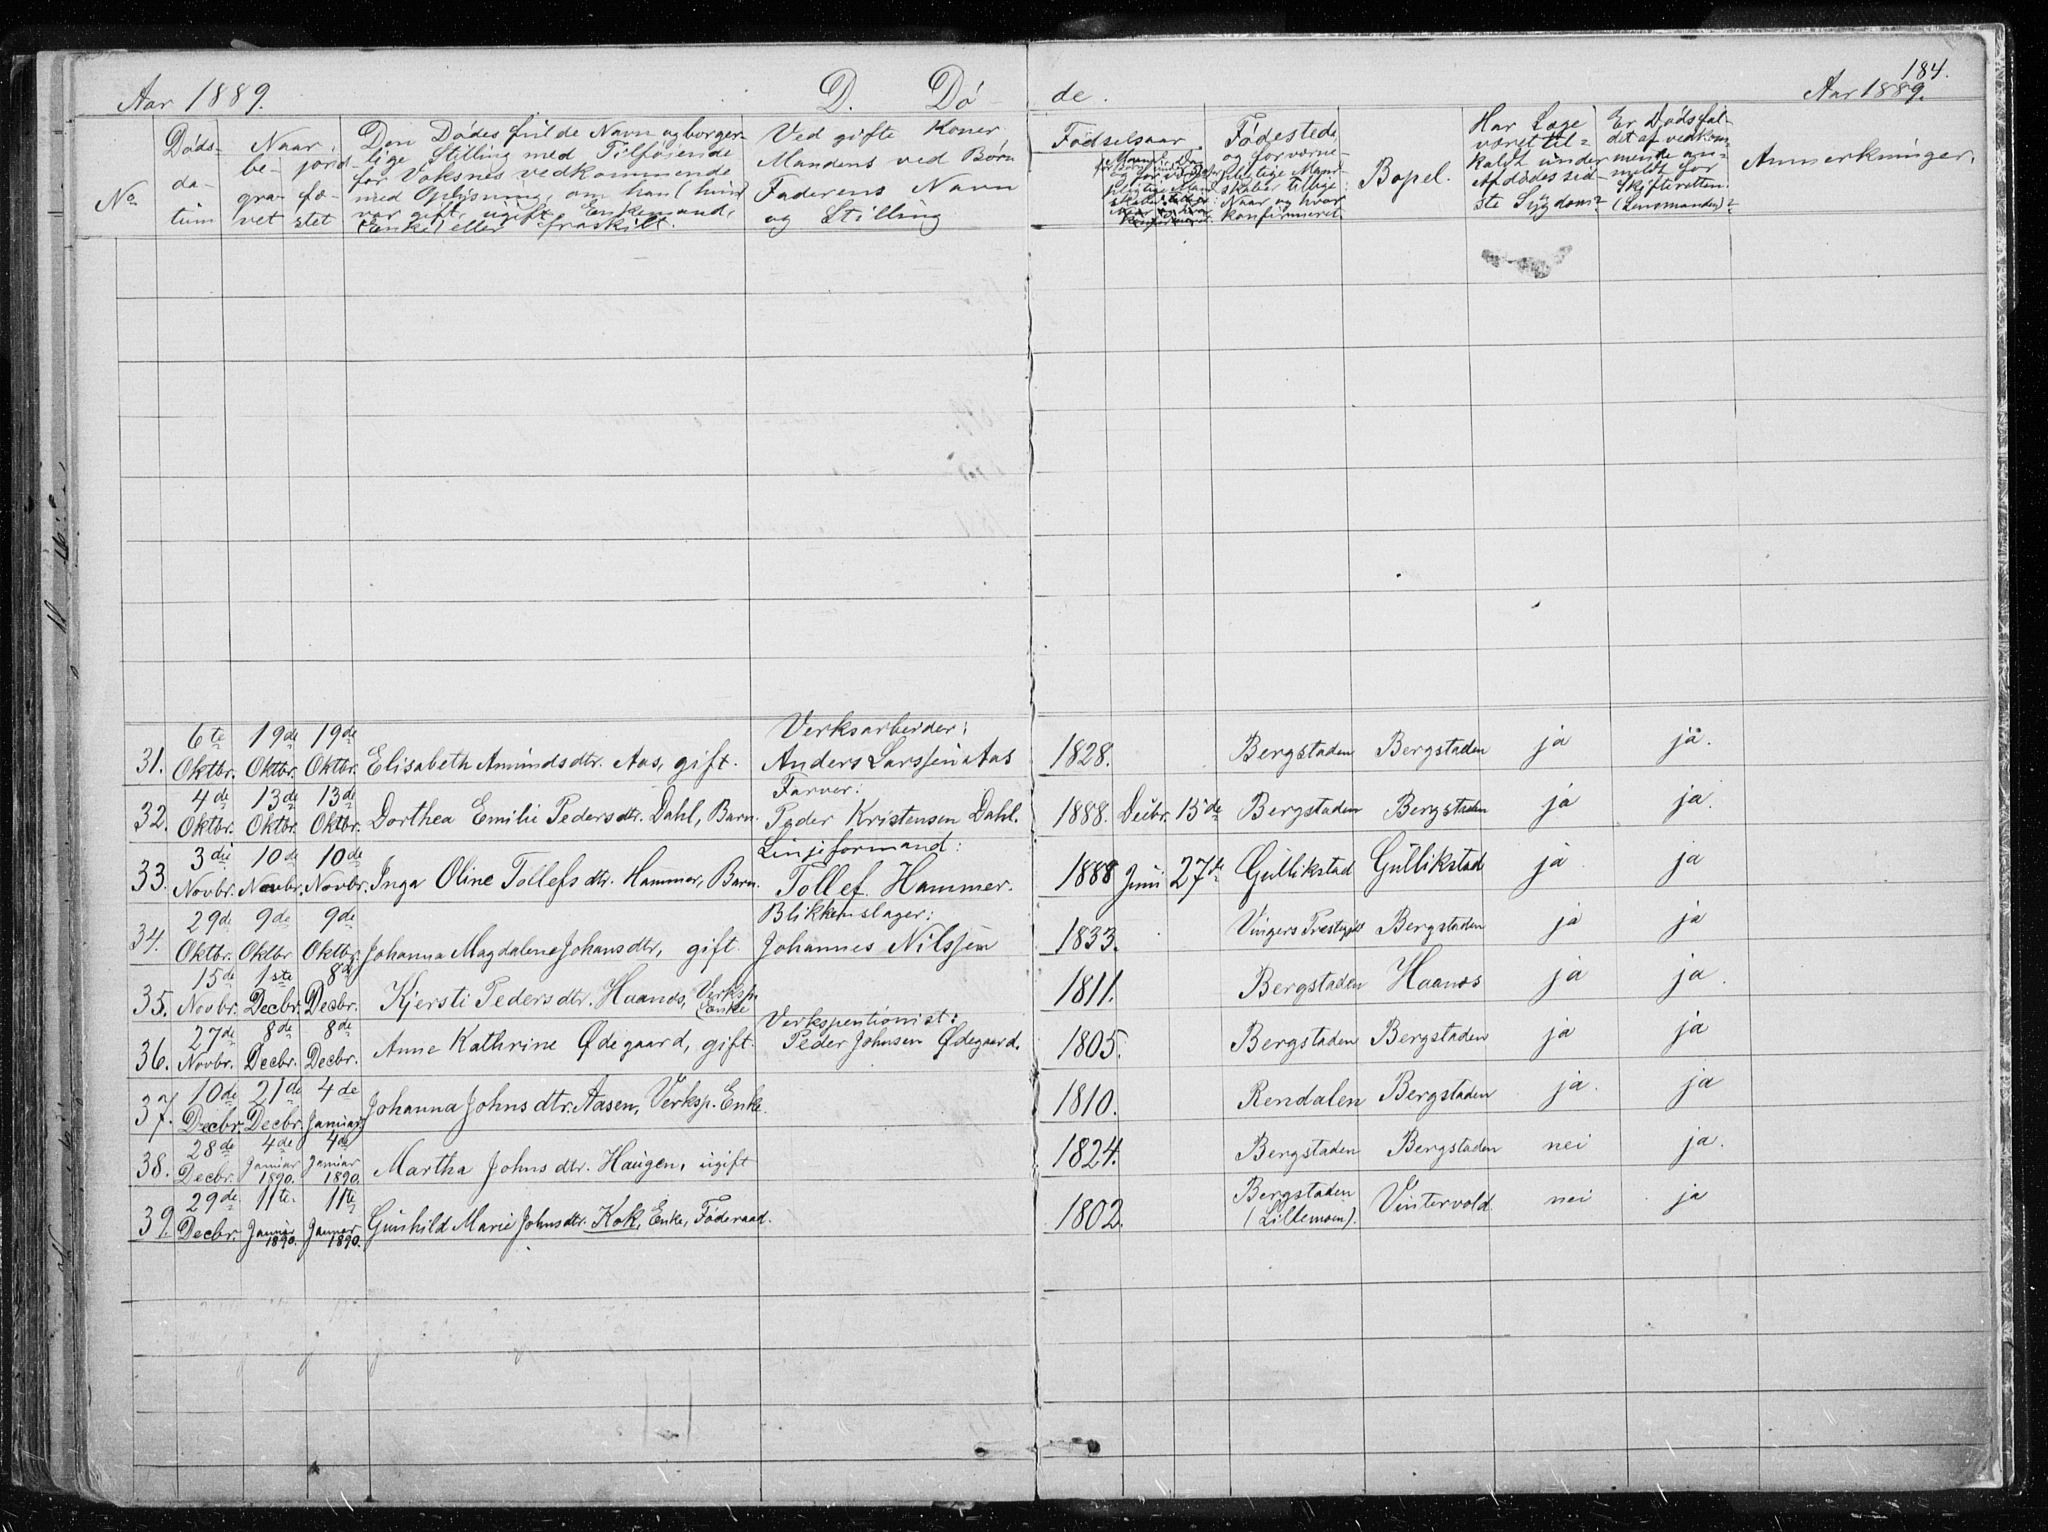 Aar 1889. D. Dö- de. 184. Aar 1889.
No
Döds-
da-
tum
Naar
be- jord-
gra- fæ-
vet stet
Den Dödes fulde Navn og borger-
lige Stilling med Tilføiende
for Voksnes vedkommende
med Oplysning, om han (hun)
var gift, ugift, Enkemand,
Enke eller fraskilt.
Ved gifte Koner
Mandens ved Børn
Faderens Navn
og Stilling
Fødselsaar
Fødested
og for værne-
pligtige Mand-
skaber tillige
Naar og hvor
konfirmeret
Bopel.
Har Læge
været til-
kaldt under
Afdødes sid-
ste Sygdom?
Er Dødsfal-
det af vedkom-
mende an-
meldt for
Skifteretten
(Lensmanden)?
Anmerkninger.
31. 6te Oktbr. 19de Oktbr. 19de Oktbr. Elisabeth Amundsdtr. Aas, gift. Verksarbeider: Anders Larssen Aas 1828. Bergstaden Bergstaden ja ja.
32. 4de Oktbr. 13de Oktbr. 13de Oktbr. Dorthea Emilie Pedersdtr. Dahl, Barn. Farver: Peder Kristensen Dahl. 1888. Decbr. 15de Bergstaden Bergstaden ja ja.
33. 3die Novbr. 10de Novbr. 10de Novbr. Inga Oline Tollefsdtr. Hammer, Barn. Linjeformand: Tollef Hammer. 1888 Juni 27de Gullikstad Gullikstad ja ja
34. 29de Oktbr. 9de Oktbr 9de Oktbr. Johanna Magdalene Johansdtr, gift. Blikkenslager: Johannes Nilssen 1833. Vingers Prestegjd Bergstaden ja ja
35. 15de Novbr. 1ste Decbr. 8de Decbr. Kjersti Pedersdtr. Haanæs, Verksp. Enke 1811. Bergstaden Haanæs ja ja.
36. 27de Novbr. 8de Decbr. 8de Decbr. Anne Kathrine Ødegaard, gift. Verkspentionist: Peder Johnsen Ødegaard. 1805. Bergstaden Bergstaden ja ja
37. 10de Decbr. 21de Decbr. 4de Januar Johanna Johnsdtr. Aasen, Verksp. Enke. 1810. Rendalen Bergstaden ja. ja
38. 28de Decbr. 4de Januar 1890. 4de Januar 1890. Martha Johnsdtr. Haugen, ugift 1824. Bergstaden Bergstaden nei ja.
39. 29de Decbr. 11te Januar 1890. 11te Januar 1890. Gunhild Marie Johnsdtr. Kok, Enke, Föderaad. 1802. Bergstaden (Lillemoen). Vintervold. nei ja